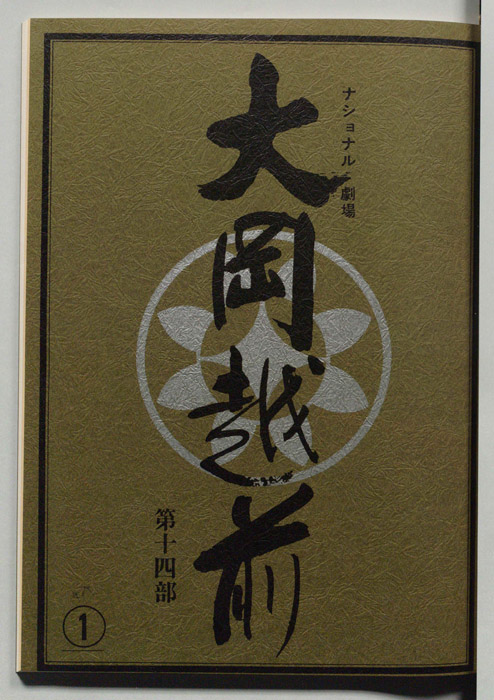 ナショナル劇場
大岡越前
第十四部
1